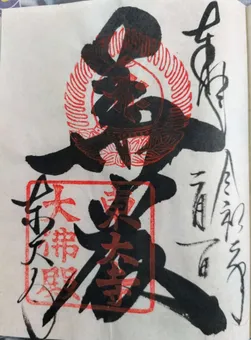 奉拝 令和
二月一日
華嚴
東大寺
大佛殿
東大寺